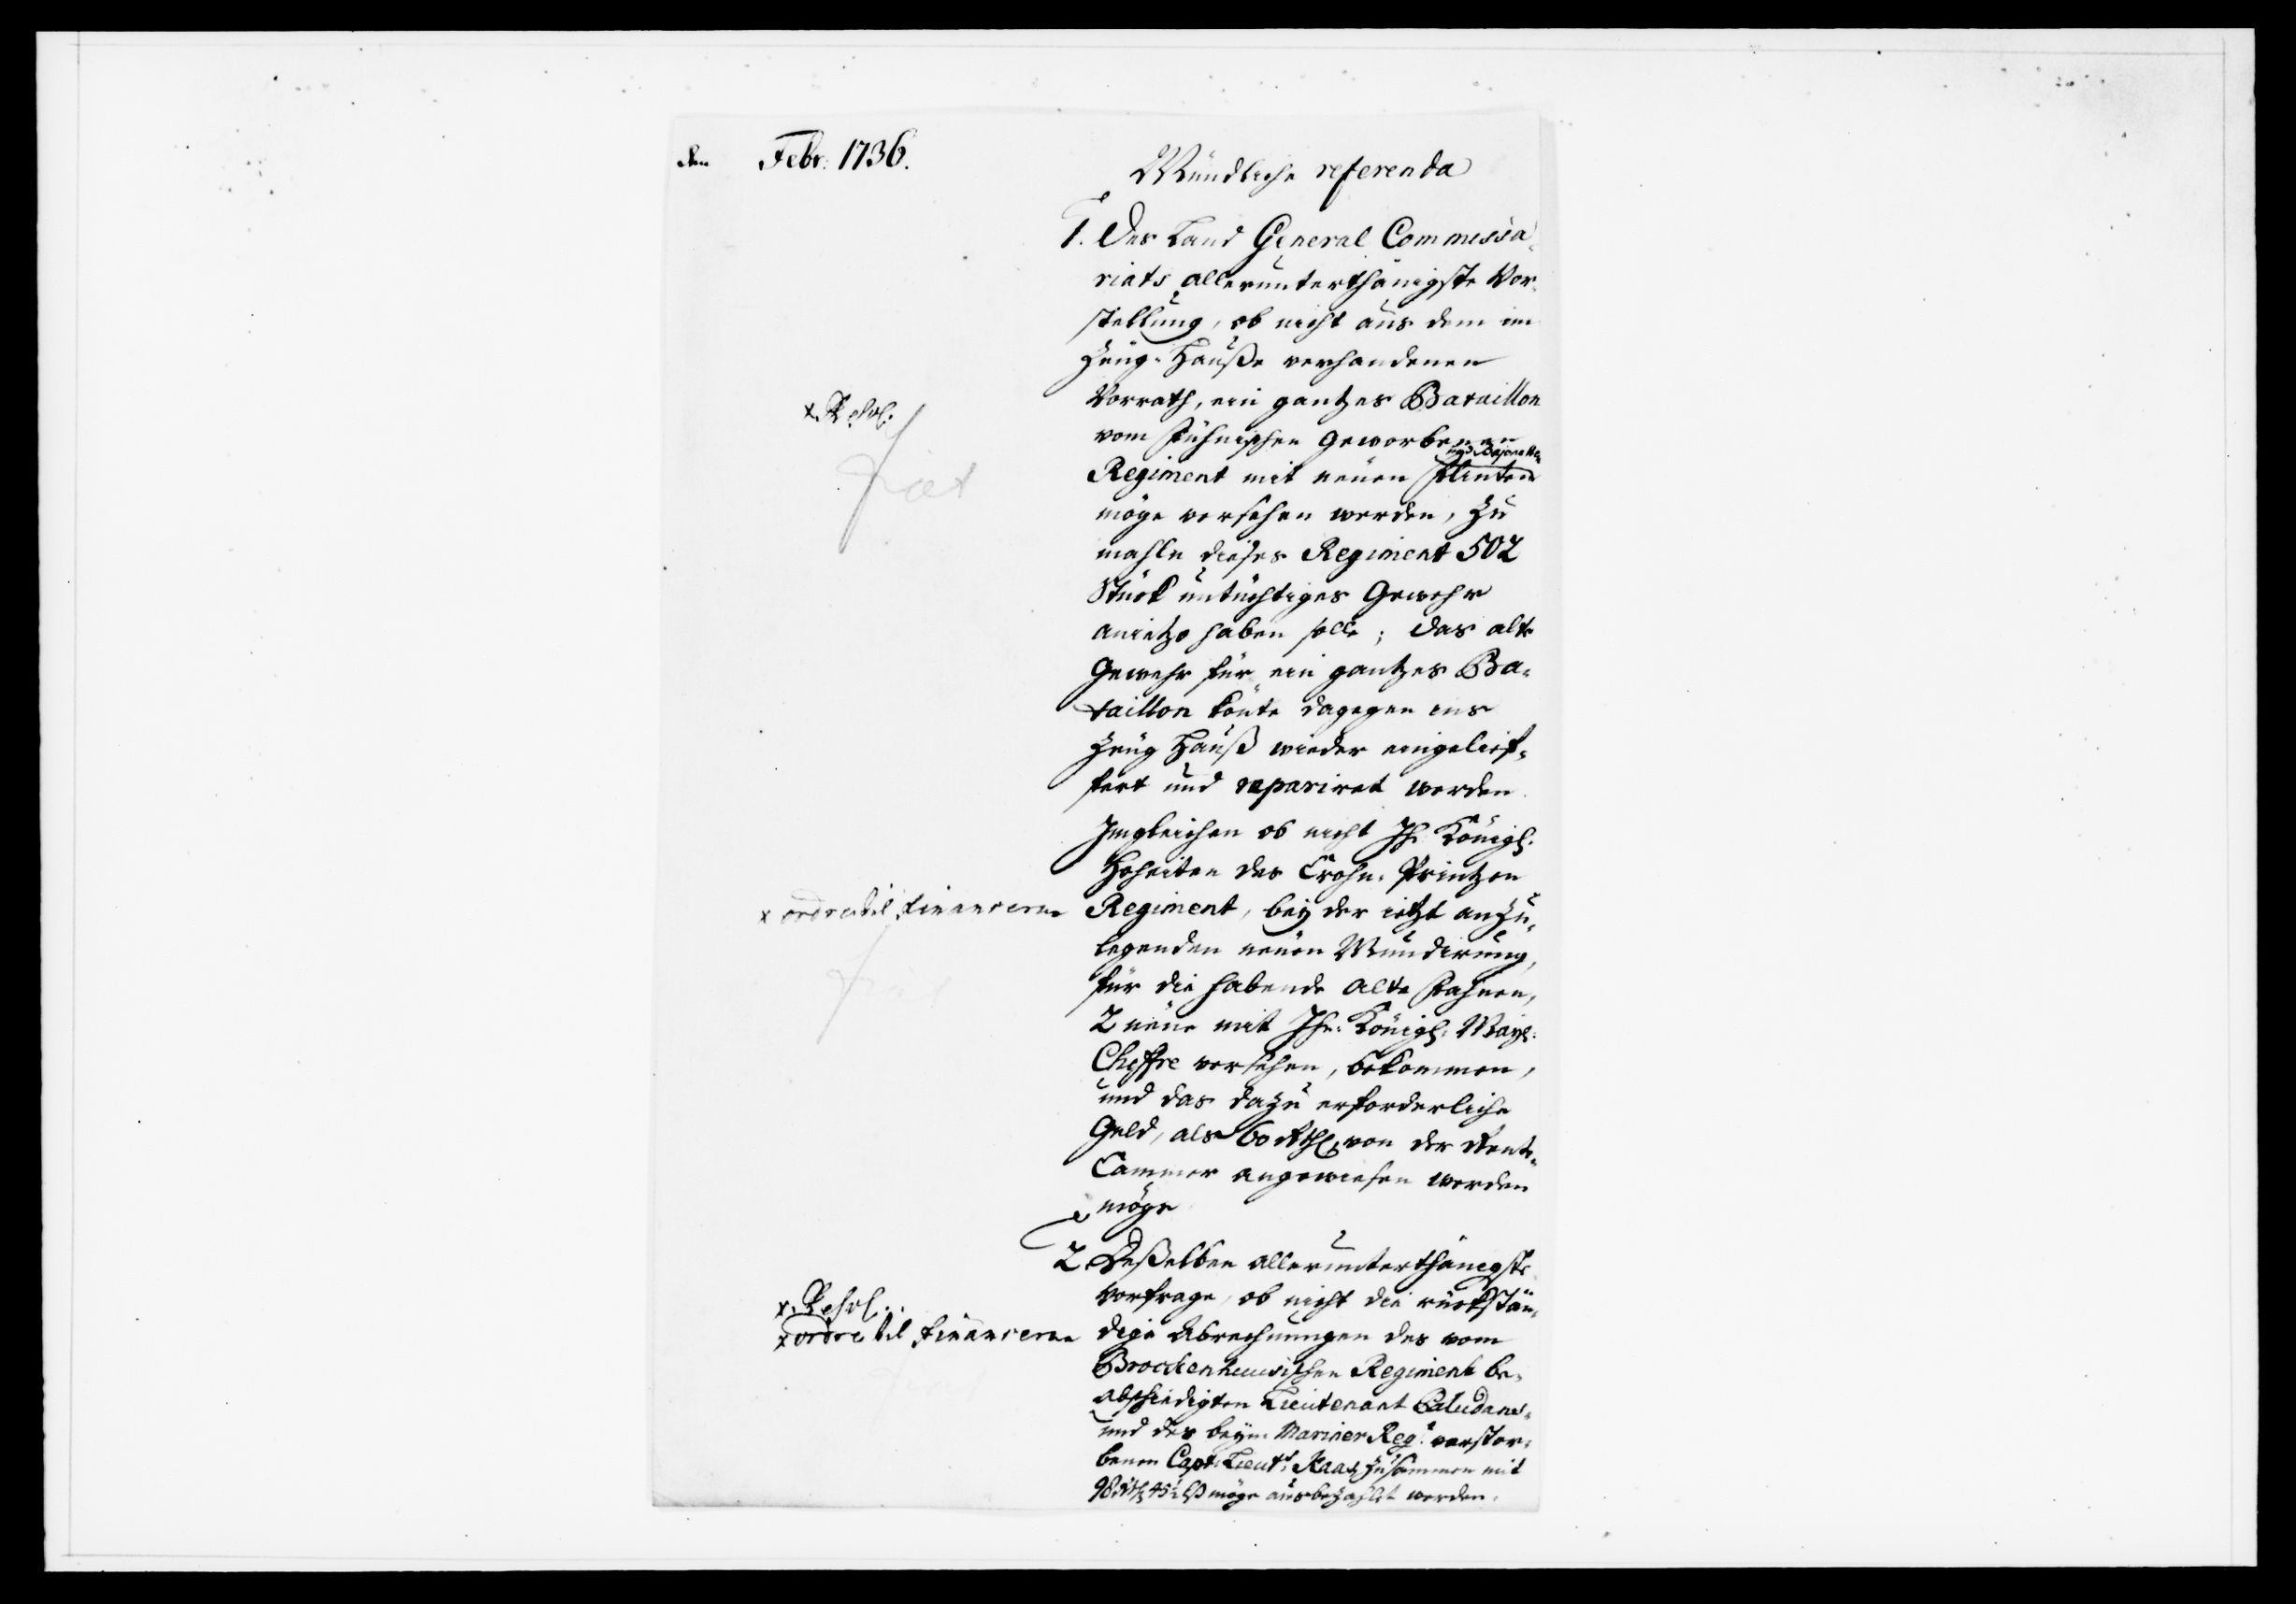 den Febr: 1736.
Mündliche referenda
1. Des Land General Commissa-
riats allerunterthänigste Vor-
stellung, ob nicht aus dem im
Zeug-Hauße verhandenen
Vorrath, ein gantzes Bataillon
vom Fühnischen geworbenen
und Bajonetten
Regiment mit neuen Flinten
möge versehen werden, zu
mahle dieses Regiment 502
Stück untüchtiges Gewehr
anietzo haben solle; das alte
Gewehr für ein gantzes Ba-
taillon könte dagegen ins
Zeug Hauß wieder eingelief-
fert und repariret werden.
x. Resol:
fiat
Imgleichen ob nicht Ih. Königl.
Hoheiten des Crohn-Printzen
Regiment, bey der ietzt anzu-
legenden neuen Mundirung,
für die habende alte Fahnen,
2 neue mit Ihr. Königl. Mayt.
Chiffre versehen, bekommen,
und das dazu erforderliche
Geld, als 60 Rthl. von der Rente-
Cammer angewiesen werden
möge
x ordre til Financerne
fiat
2. Deßelben allerunterthänigste
Vorfrage, ob nicht die rückstän-
dige Abrechnungen des vom
Brockenhuusischen Regiment be-
abschiedigten Lieutenant Paludans-
und des beym Mariner Regt. verstor-
benen Capt: Lieutt: Kaas, zusammen mit
98 Rthl 45½ ß möge ausbezahlt werden.
x. Resol:
x ordre til Financerne
fiat